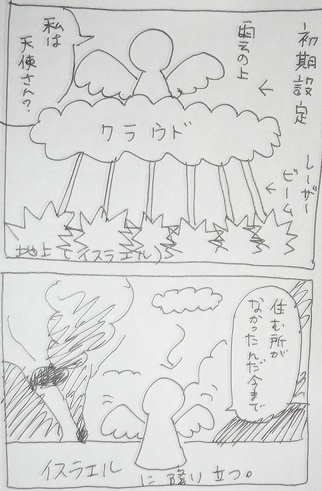 初期設定
雲の上
私は
天使さん?
クラウド
レーザー
ビーム
地上(イスラエル)
住む所が
なかったんだ今まで
イスラエル
に降り立つ。